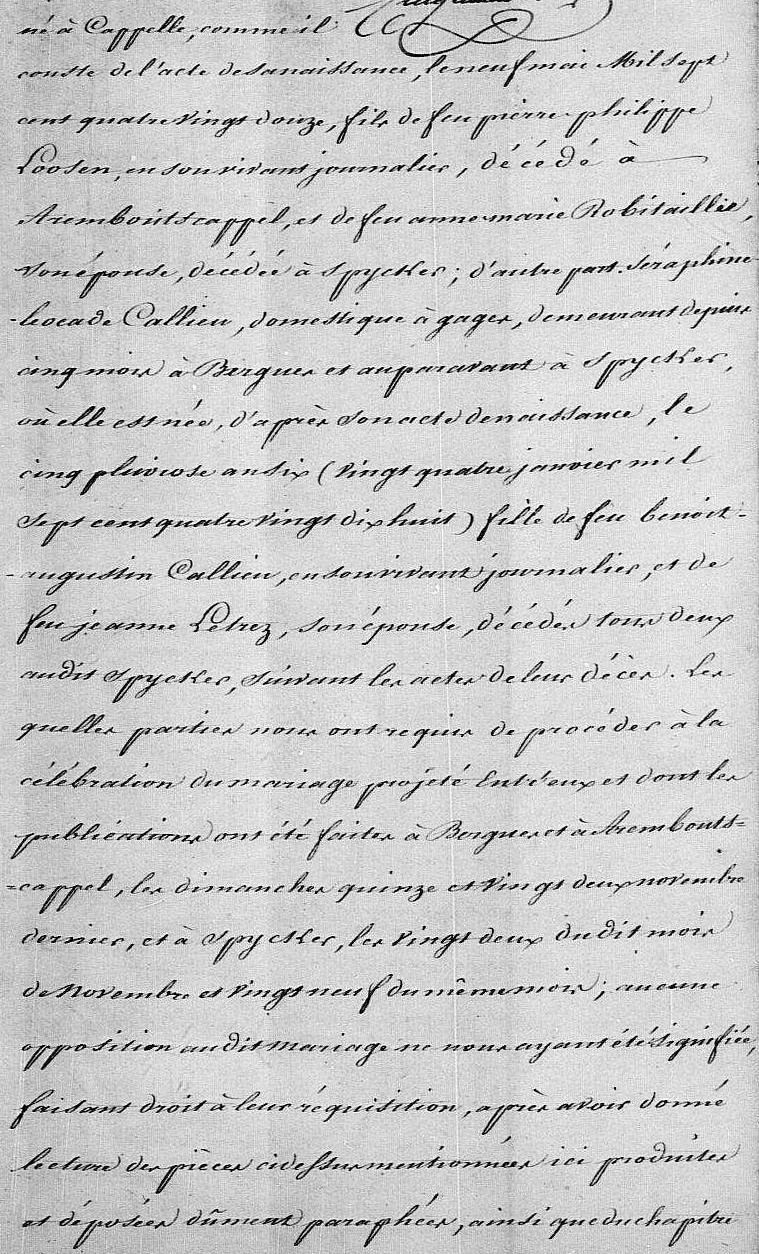 né à Cappelle, comme il
conste de l'acte de sa naissance, le neuf mai Mil sept
cent quatre Vingt douze, fils de feu pierre philippe
Loosen, en son vivant journalier, décédé à
Arembouts cappel, et de feu anne-marie Robitaillie,
son épouse, décédée à Spycker; d'autre part. Séraphine
-leocade Callieu, domestique à gages, demeurant depuis
cinq mois à Bergues et auparavant à Spycker,
où elle est née, d'après son acte de naissance, le
cinq pluviose an six (Vingt quatre janvier mil
sept cent quatre Vingt dix huit) fille de feu benoit-
-augustin Callieu, en son vivant journalier, et de
feu jeanne Letrez, son épouse, décédés tous deux
audit Spycker, suivant les actes de leur décès. Les
quelles parties nous ont requis de procéder à la
célébration du mariage projeté Entr'eux et dont les
publications ont été faites à Bergues et à Arembouts=
=cappel, les dimanches quinze et Vingt deux novembre
dernier, et à Spycker, les Vingt deux dudit mois
de Novembre et Vingt neuf du même mois; aucune
opposition audit mariage ne nous ayant été signifiée,
faisant droit à leur réquisition, après avoir donné
lecture des pièces cidessus mentionnées ici produites
et déposées dûment paraphées, ainsi que du chapitre